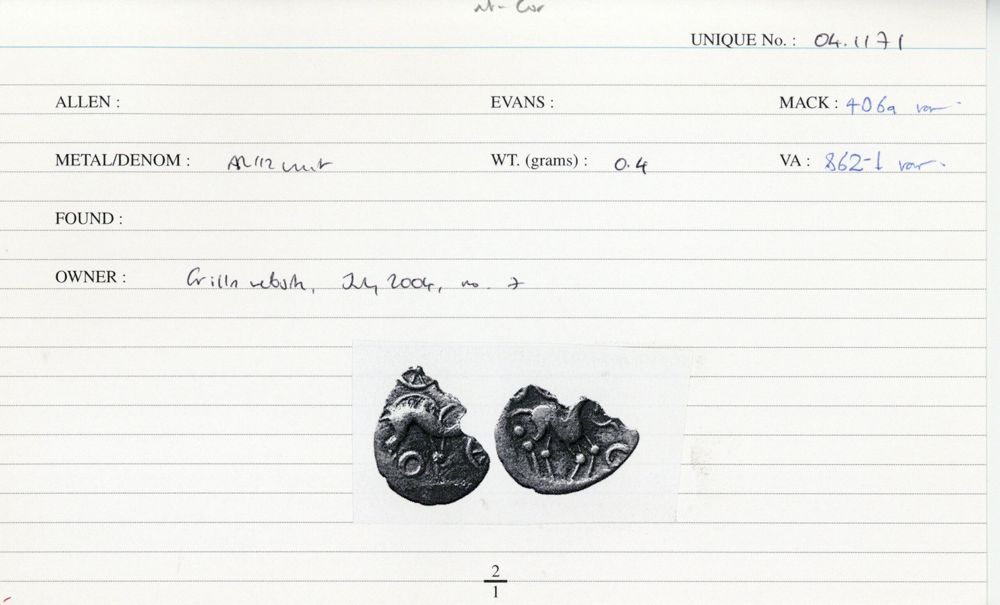 UNIQUE No. : 04.1171
ALLEN :
EVANS :
MACK : 406a var.
METAL/DENOM : AR 1/2 unit
WT. (grams) : 0.4
VA : 862-1 var.
FOUND :
OWNER : website, July 2004, no. 7
2
1